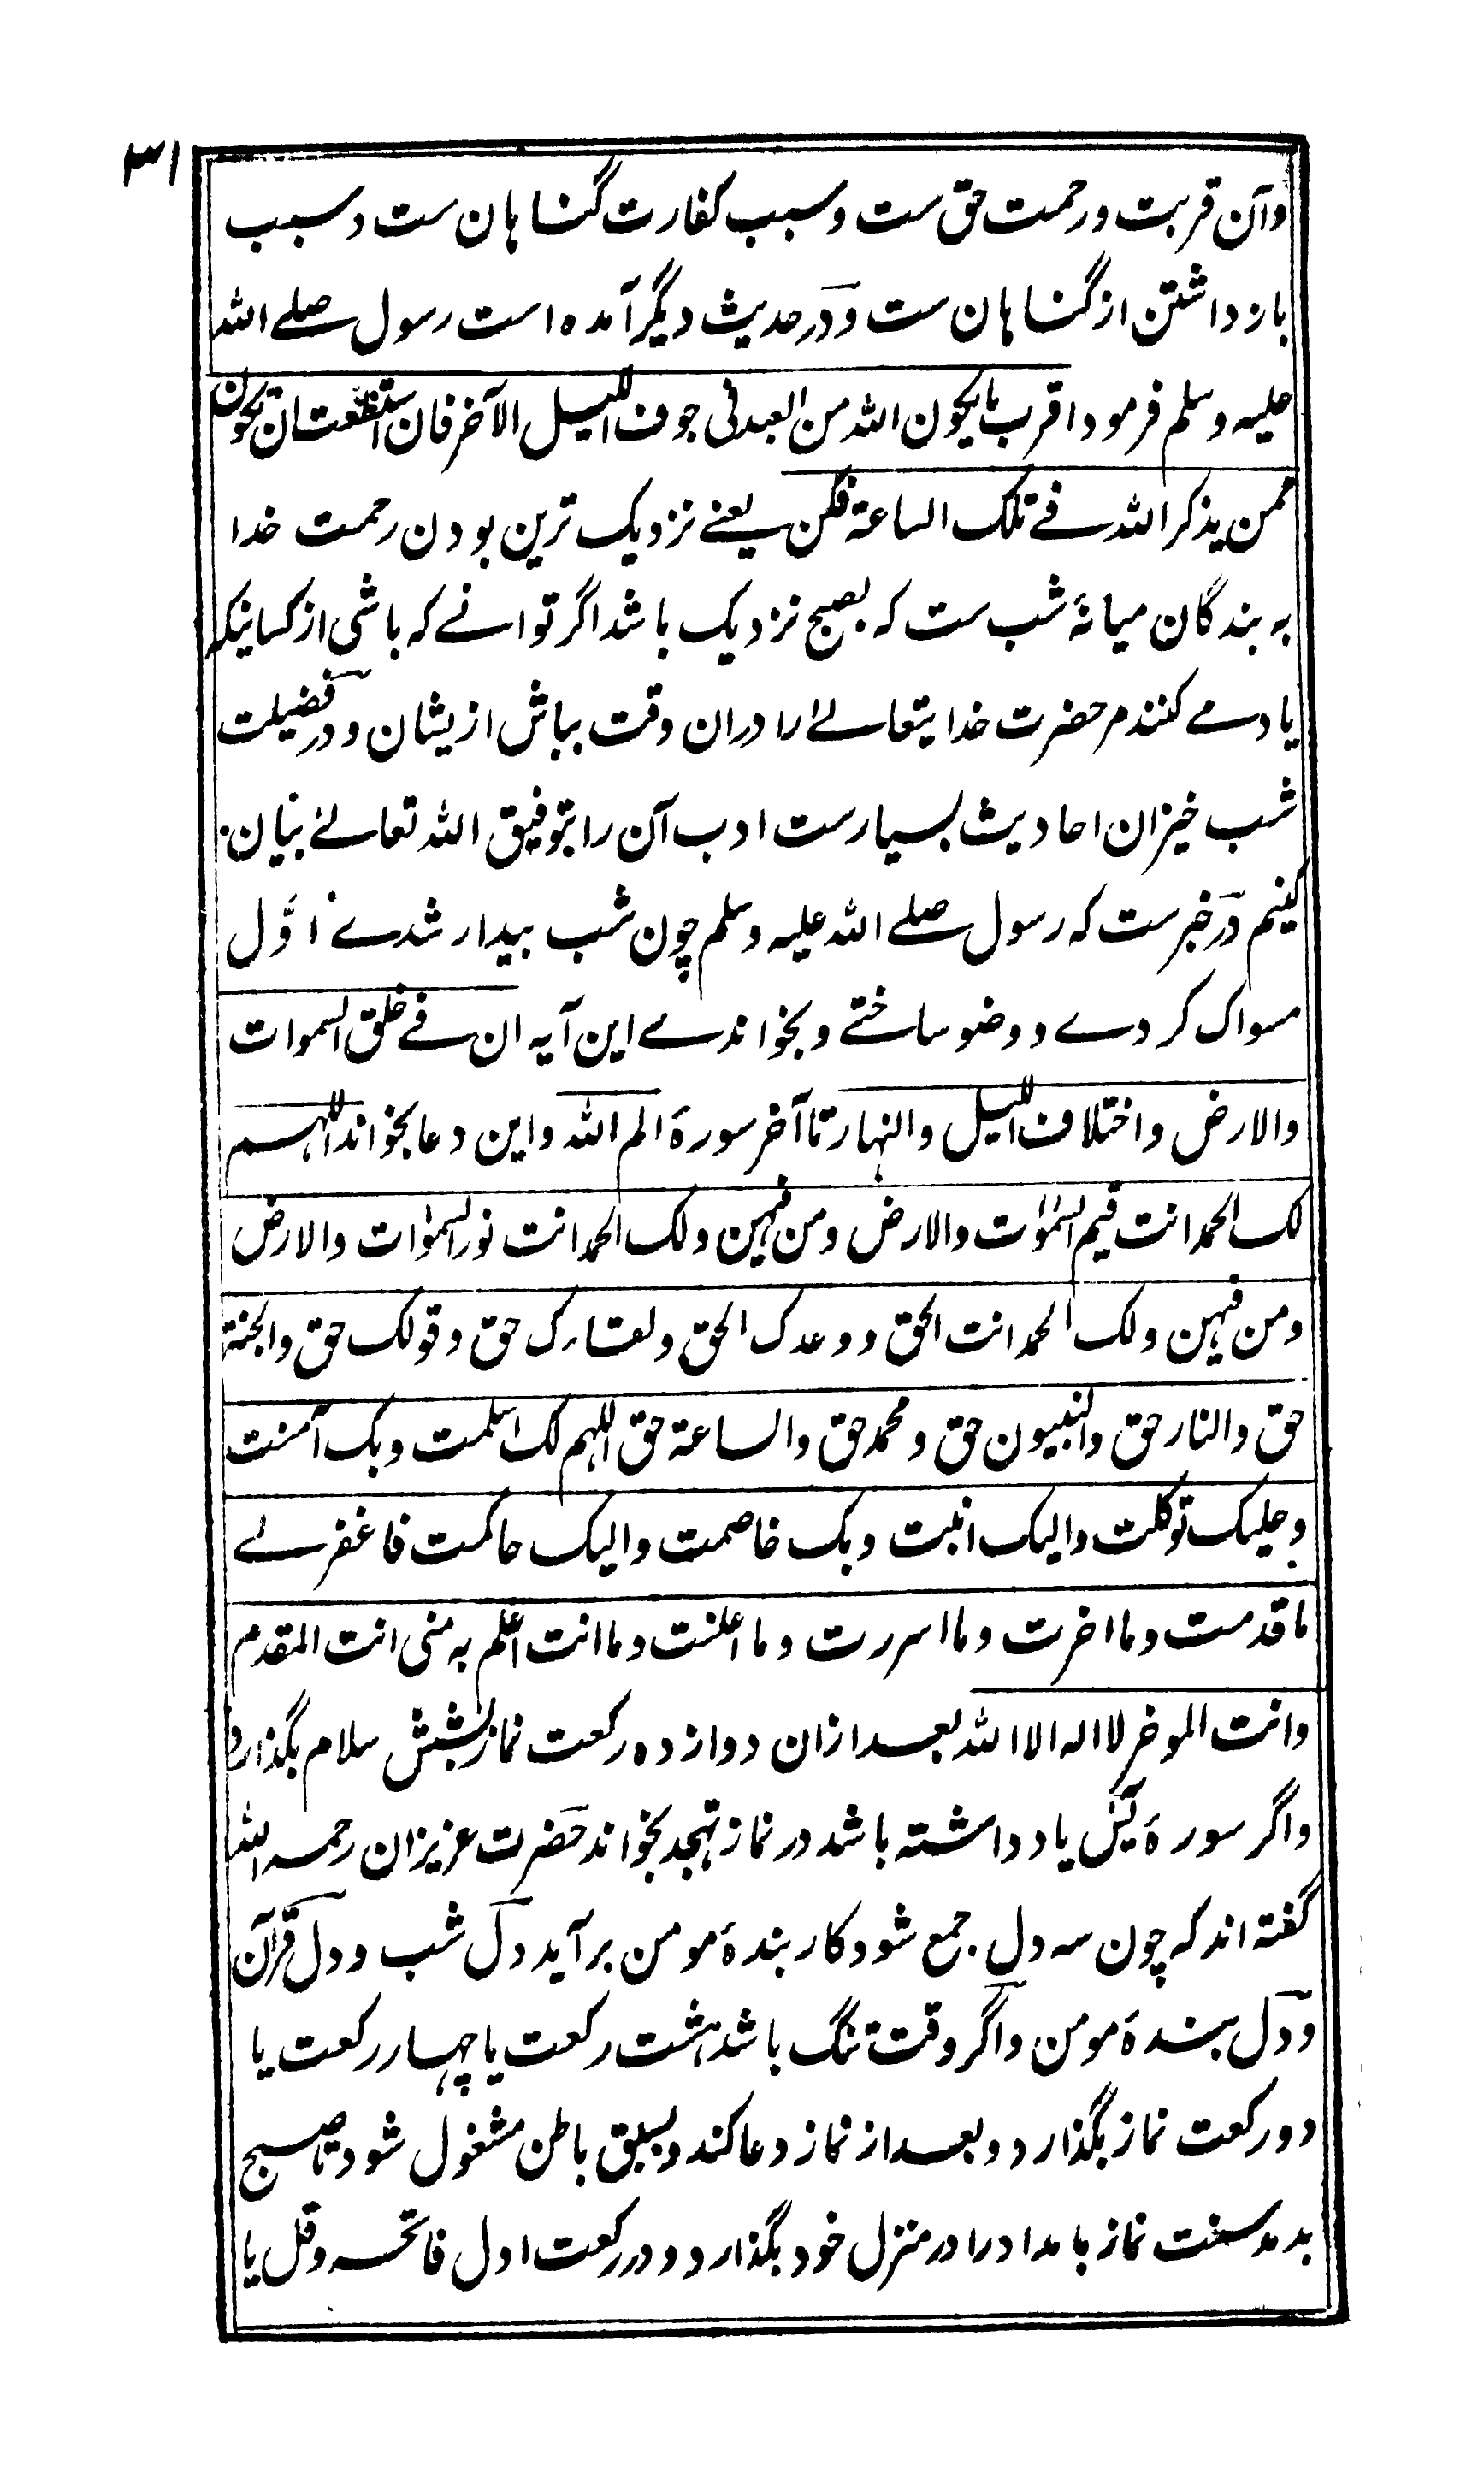 ۳۱
وآن قربت ورحمت حق ست وسبب کفارت گناہان ست وسبب
باز داشتن از گناہان ست ودر حدیث دیگر آمدہ است رسول صلے اللہ
علیہ وسلم فرمود اقرب ما یکون اللہ من العبد فی جوف اللیل الآخر فان استطعت ان تکون
ممن یذکر اللہ فے تلک الساعۃ فکن یعنے نزدیک ترین بودن رحمت خدا
بہ بندگان میانۂ شب ست کہ بصبح نزدیک باشد اگر توانے کہ باشی از کسانیکہ
یاد مے کنند مر حضرت خدا یتعالےٰ را دران وقت بباش ازیشان ودر فضیلت
شب خیزان احادیث بسیارست ادب آن را بتوفیق اللہ تعالےٰ بیان
کنیم در خبرست کہ رسول صلے اللہ علیہ وسلم چون شب بیدار شدے اوّل
مسواک کردے ووضو ساختے وبخواندے این آیہ ان فے خلق السموات
والارض واختلاف اللیل والنہار تا آخر سورۂ الم اللہ واین دعا بخواند اللہم
لک الحمد انت قیم السمٰوات والارض ومن فیہن ولک الحمد انت نور السمٰوات والارض
ومن فیہن ولک الحمد انت الحق ووعدک الحق ولقاءک حق وقولک حق والجنۃ
حق والنار حق والنبیون حق ومحمد حق والساعۃ حق اللہم لک اسلمت وبک آمنت
وعلیک توکلت والیک انبت وبک خاصمت والیک حاکمت فاغفر لے
ما قدمت وما اخرت وما اسررت وما اعلنت وما انت اعلم بہ منی انت المقدم
وانت الموخر لا الہ الا اللہ بعد ازان دوازدہ رکعت نماز بشش سلام بگذارد
واگر سورۂ یٰس یاد داشتہ باشد در نماز تہجد بخواند حضرت عزیزان رحمہ اللہ
گفتہ اند کہ چون سہ دل جمع شود کار بندۂ مومن برآید دل شب ودل قرآن
ودل بندۂ مومن واگر وقت تنگ باشد ہشت رکعت یا چہار رکعت یا
دو رکعت نماز بگذارد وبعد از نماز دعا کند وبسبق باطن مشغول شود تا صبح
بدمد سنت نماز بامداد را در منزل خود بگذارد ودر رکعت اول فاتحہ وقل یا